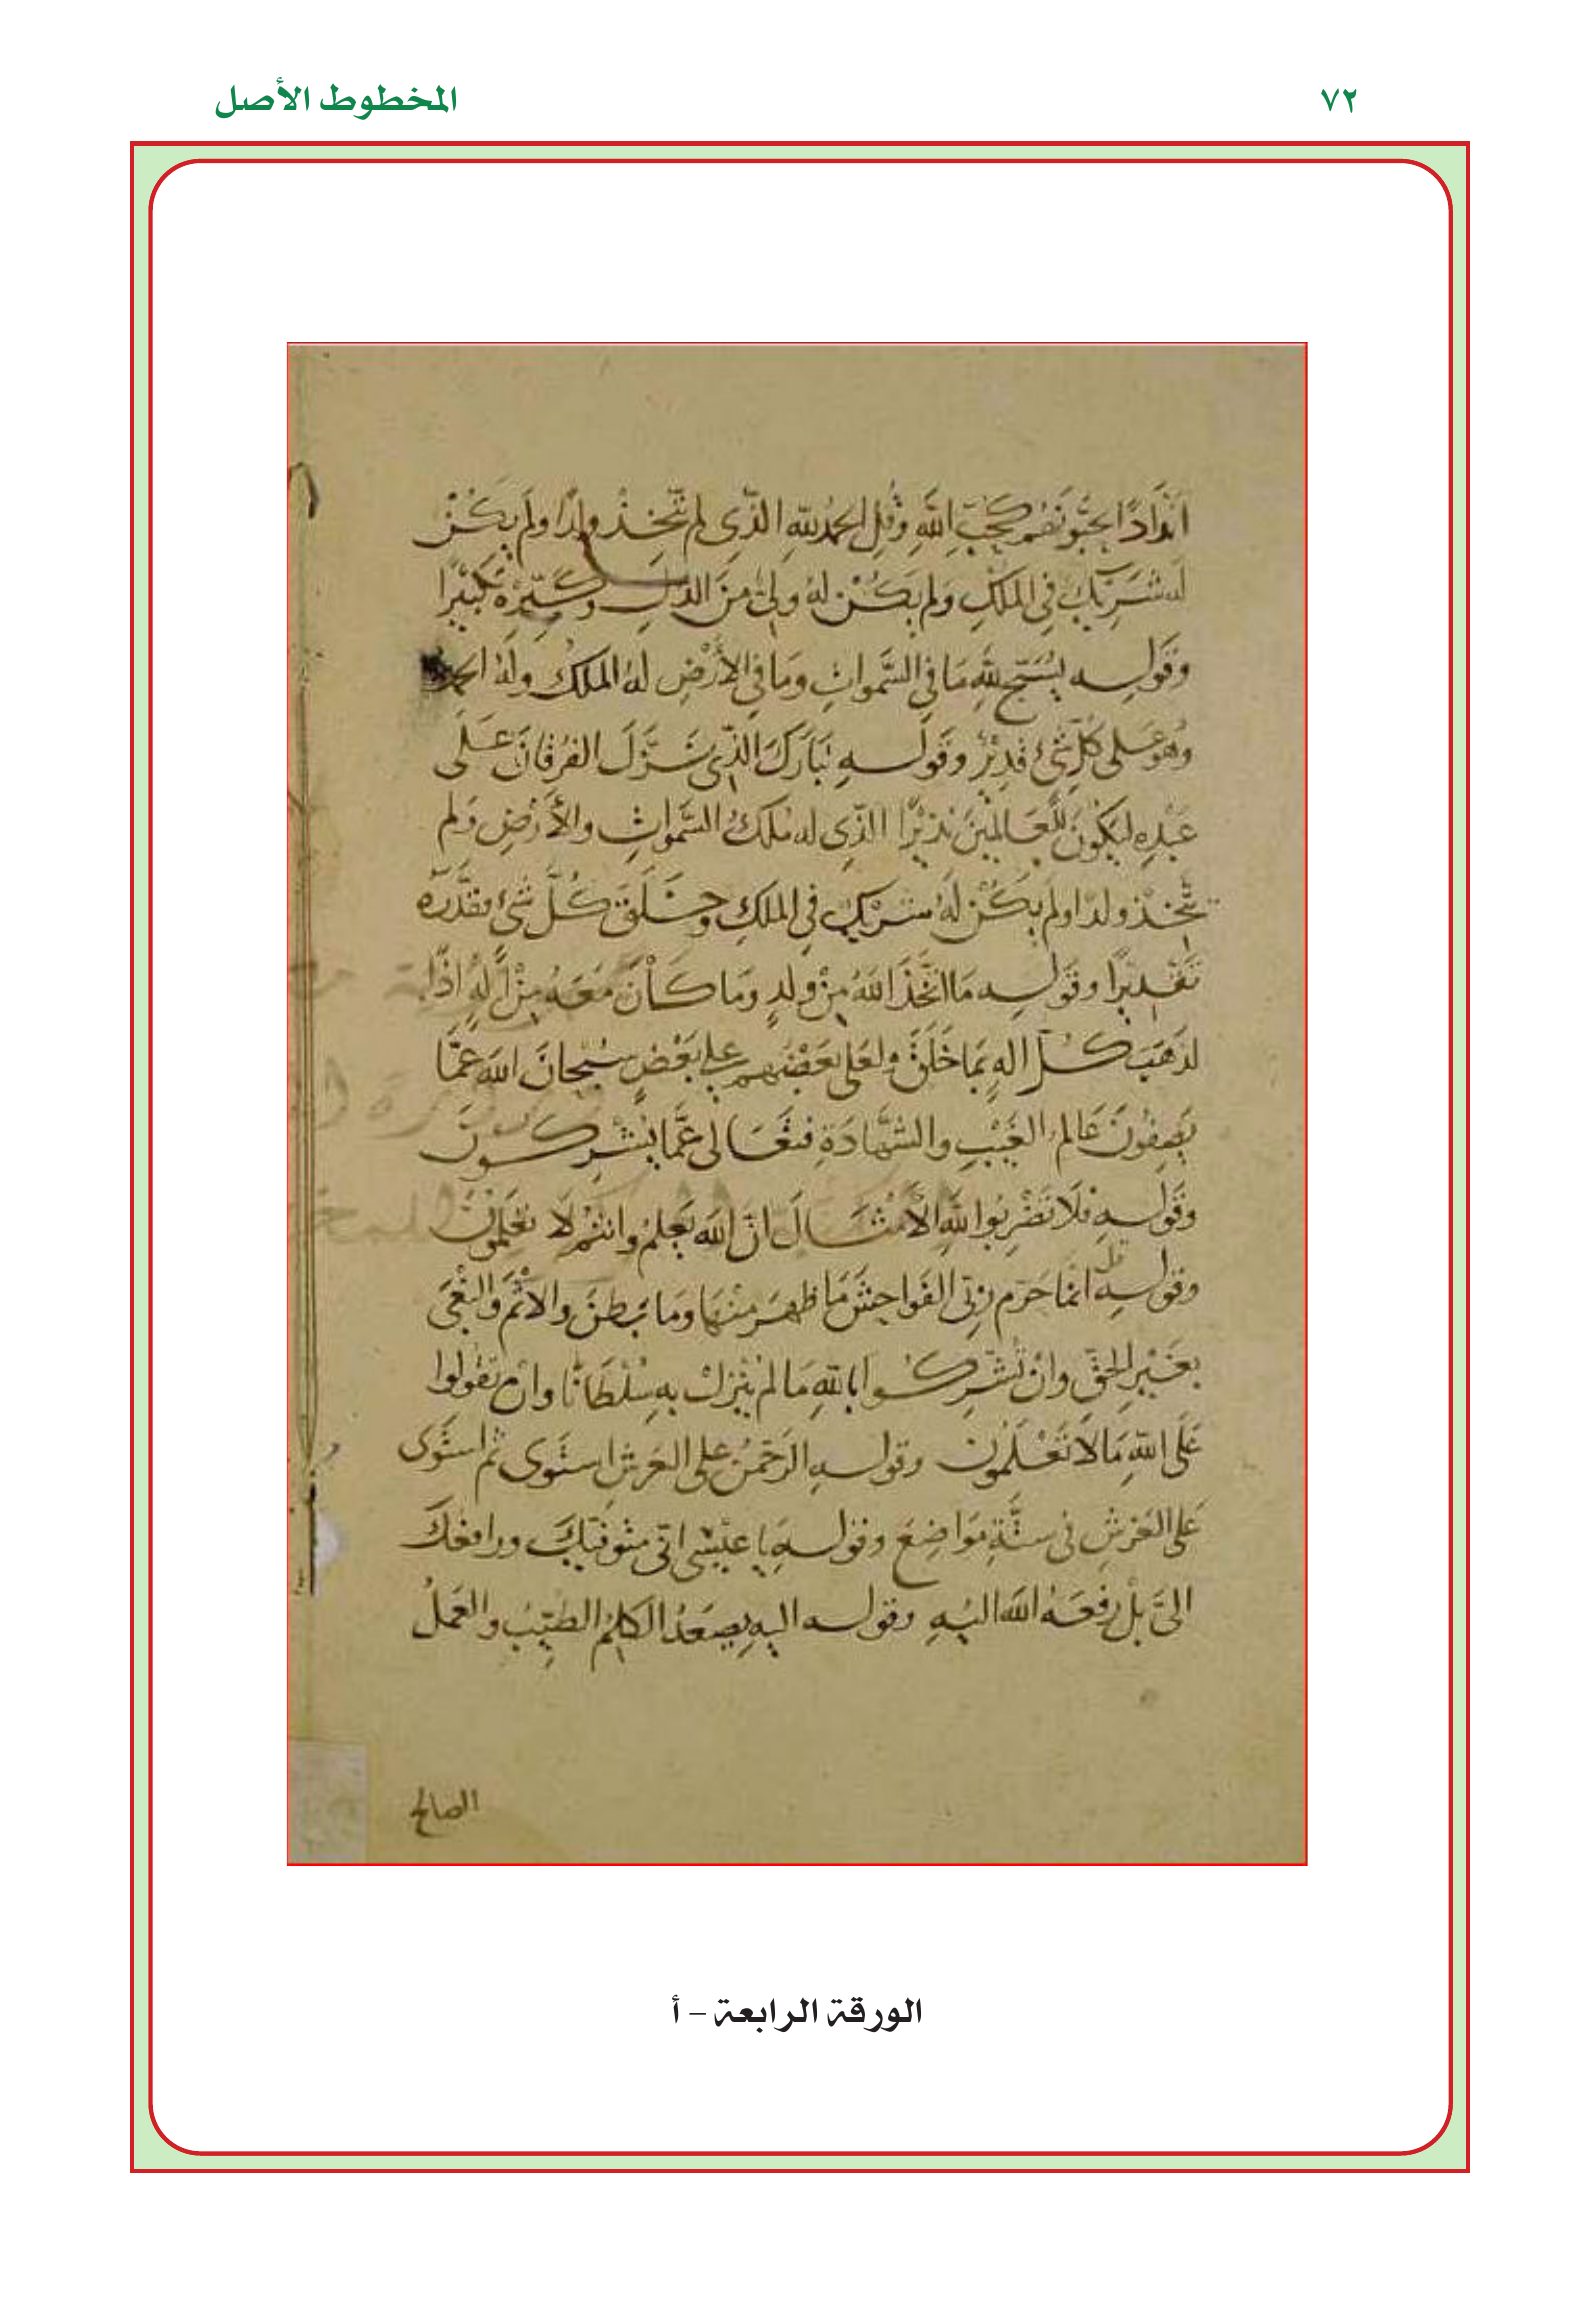 ٧٢
المخطوط الأصل
أندادًا يحبونهم كحب الله وقل الحمد لله الذي لم يتخذ ولدًا ولم يكن
له شريك في الملك ولم يكن له ولي من الذل وكبره تكبيرًا
وقوله يسبح لله ما في السموات وما في الأرض له الملك وله الحمد
وهو على كل شئ قدير وقوله تبارك الذي نزل الفرقان على
عبده ليكون للعالمين نذيرًا الذي له ملك السموات والأرض ولم
يتخذ ولدًا ولم يكن له شريك في الملك وخلق كل شئ فقدره
تقديرًا وقوله ما اتخذ الله من ولد وما كان معه من إله إذًا
لذهب كل اله بما خلق ولعلى بعضهم على بعض سبحان الله عمّا
يصفون عالم الغيب والشهادة فتعالى عمّا يشركون
وقوله فلا تضربوا لله الأمثال ان الله يعلم وانتم لا تعلمون
وقوله قل انما حرم ربّي الفواحش ما ظهر منها وما بطن والأثم والبغي
بغير الحقّ وان تشركوا بالله ما لم ينزل به سلطانًا وان تقولوا
على الله ما لا تعلمون وقوله الرحمن على العرش استوى ثم استوى
على العرش في ستة مواضع وقوله يا عيسى انّي متوفيك ورافعك
الىّ بل رفعه الله اليه وقوله اليه يصعد الكلم الطيّب والعمل
الصالح
الورقة الرابعة – أ